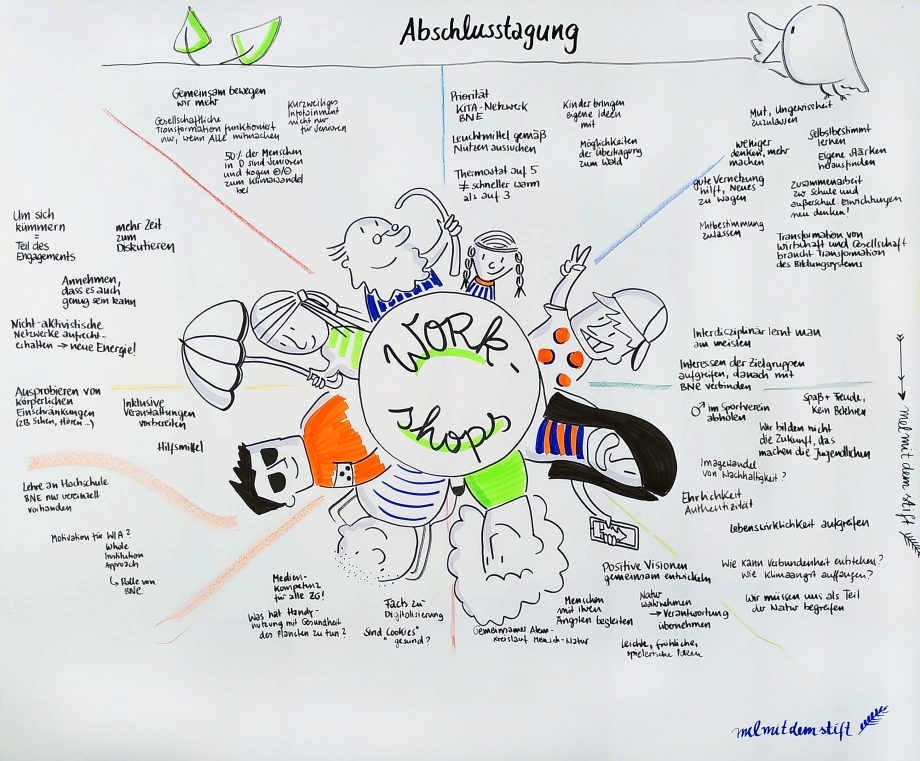 Abschlusstagung
Gemeinsam bewegen
wir mehr
Gesellschaftliche
Transformation funktioniert
nur, wenn Alle mitmachen
Kurzweiliges
Infotainment
nicht nur
für Senioren
50% der Menschen
in D sind Senioren
und tragen
zum Klimawandel
bei
Priorität
KITA-Netzwerk
BNE
Leuchtmittel gemäß
Nutzen aussuchen
Thermostat auf 5
≠ schneller warm
als auf 3
Kinder bringen
eigene Ideen
mit
Möglichkeiten
der Übertragung
zum Wald
Mut, Ungewissheit
zuzulassen
weniger
denken, mehr
machen
Selbstbestimmt
lernen
Eigene Stärken
herausfinden
gute Vernetzung
hilft, Neues
zu wagen
Zusammenarbeit
zw Schule und
außerschul. Einrichtungen
neu denken!
Mitbestimmung
zulassen
Transformation von
Wirtschaft und Gesellschaft
braucht Transformation
des Bildungssystems
Um sich
kümmern
=
Teil des
Engagements
mehr Zeit
zum
Diskutieren
Annehmen,
dass es auch
genug sein kann
Nicht-aktivistische
Netzwerke aufrecht-
erhalten → neue Energie!
Work-
shops
Interdisziplinär lernt man
am meisten
Interessen der Zielgruppen
aufgreifen, danach mit
BNE verbinden
♂ im Sportverein
abholen
Spaß + Freude,
Kein Belehren
Wir bilden nicht
die Zukunft, das
machen die Jugendlichen
Imagewandel
von Nachhaltigkeit?
Ehrlichkeit
Authentizität
Lebenswirklichkeit aufgreifen
Ausprobieren von
körperlichen
Einschränkungen
(zB Sehen, Hören...)
Inklusive
Veranstaltungen
vorbereiten
Hilfsmittel
Lehre an Hochschule
BNE nur vereinzelt
vorhanden
Motivation für WIA?
Whole
Institution
Approach
↳ Rolle von
BNE
Medien-
kompetenz
für alle ZG!
Was hat Handy-
nutzung mit Gesundheit
des Planeten zu tun?
Fach zu
Digitalisierung
Sind "Cookies"
gesund?
Gemeinsamer Atem-
kreislauf Mensch-Natur
Positive Visionen
gemeinsam entwickeln
Menschen
mit ihren
Ängsten begleiten
Natur
wahrnehmen
→ Verantwortung
übernehmen
Leichte, fröhliche,
spielerische Ideen
Wie kann Verbundenheit entstehen?
Wie Klimaangst auffangen?
Wir müssen uns als Teil
der Natur begreifen
mel mit dem stift
melmitdemstift